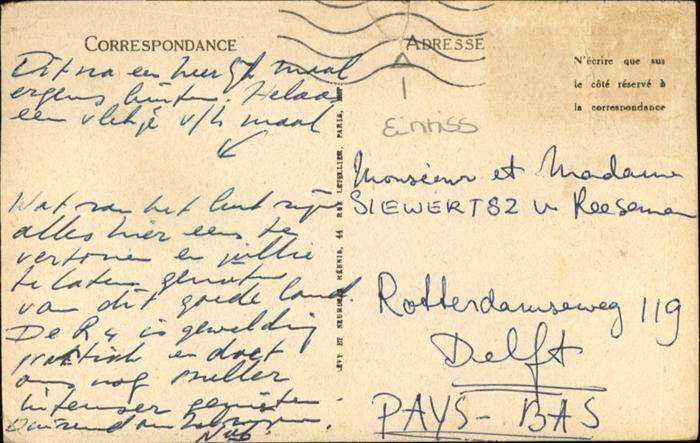 CORRESPONDANCE
ADRESSE
N'écrire que sur
le côté réservé à
la correspondance
Dit na een heerlijk maal
ergens buiten. Helaas
een vlekje v/h maal
Wat zou het leuk zijn
alles hier eens te
vertonen en jullie
te laten genieten
van dit goede land.
De R4 is geweldig
praktisch en doet
ons nog sneller
intenser genieten.
Duizend
LEVY ET NEURDEIN RÉUNIS, 44 RUE LETELLIER, PARIS
Monsieur et Madame
SIEWERTSZ v. Reesema
Rotterdamseweg 119
Delft
PAYS-BAS